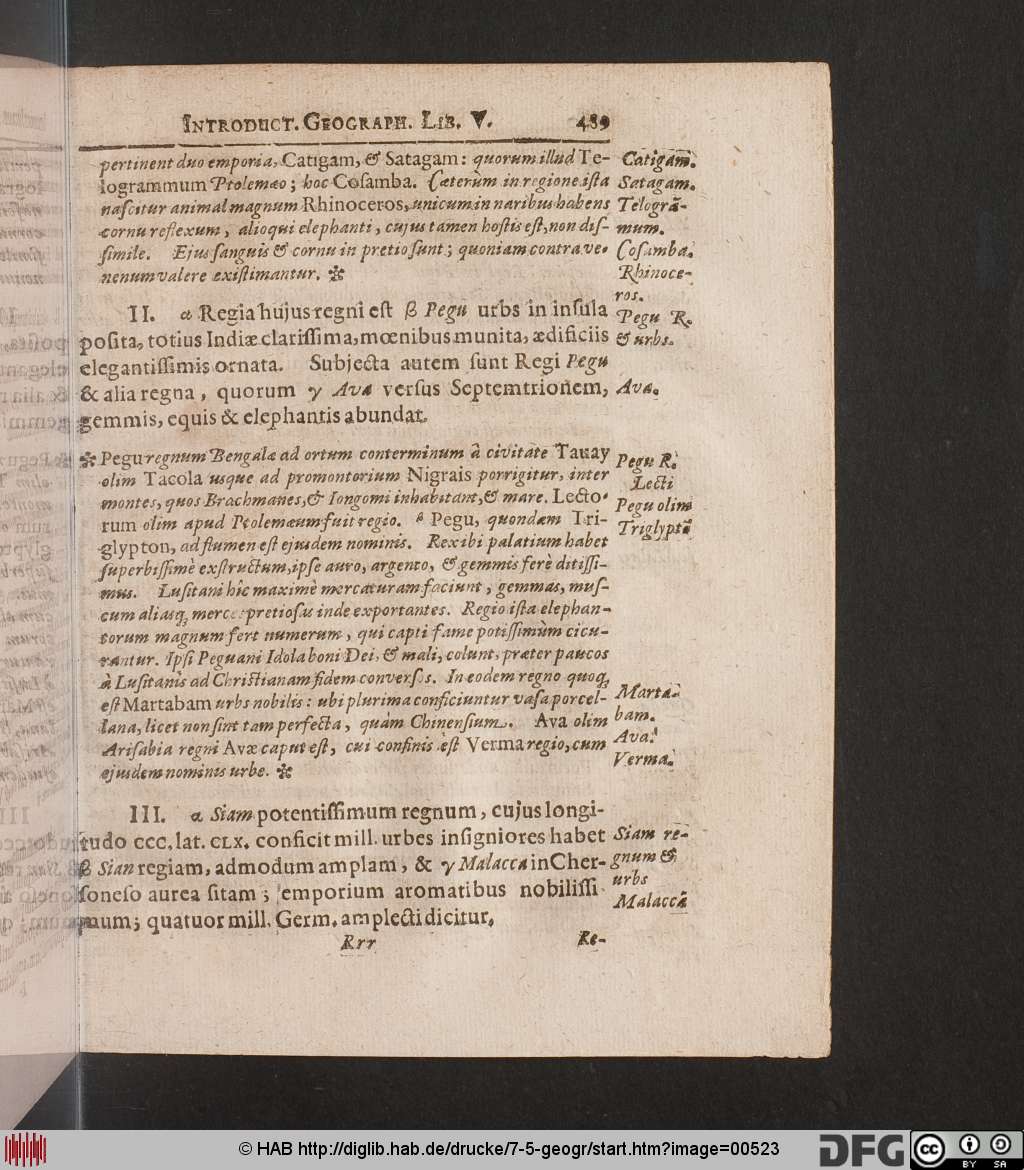 INTRODUCT. GEOGRAPH. LIB. V. 489
pertinent duo emporia, Catigam, & Satagam: quorum illud Te-
logrammum Ptolemæo; hoc Cosamba. Cæterùm in regione ista
nascitur animal magnum Rhinoceros, unicum in naribus habens
cornu reflexum, alioqui elephanti, cujus tamen hostis est, non dis-
simile. Ejus sanguis & cornu in pretio sunt; quoniam contra ve-
nenum valere existimantur. ✽
Catigam.
Satagam.
Telogrã-
mum.
Cosamba.
Rhinoce-
ros.
II. α Regia hujus regni est β Pegu urbs in insula
posita, totius Indiæ clarissima, mœnibus munita, ædificiis
elegantissimis ornata. Subjecta autem sunt Regi Pegu
& alia regna, quorum γ Ava versus Septemtrionem,
gemmis, equis & elephantis abundat.
Pegu R.
& urbs.
Ava.
✽ Pegu regnum Bengalæ ad ortum conterminum à civitate Tavay
olim Tacola usque ad promontorium Nigrais porrigitur, inter
montes, quos Brachmanes, & Iongomi inhabitant, & mare. Lecto-
rum olim apud Ptolemæum fuit regio. β Pegu, quondam Tri-
glypton, ad flumen est ejusdem nominis. Rex ibi palatium habet
superbissimè exstructum, ipse auro, argento, & gemmis ferè ditissi-
mus. Lusitani hîc maximè mercaturam faciunt, gemmas, mus-
cum aliasq; merces pretiosas inde exportantes. Regio ista elephan-
torum magnum fert numerum, qui capti fame potissimùm cicu-
rantur. Ipsi Peguani Idola boni Dei, & mali, colunt, præter paucos
à Lusitanis ad Christianam fidem conversos. In eodem regno quoq;
est Martabam urbs nobilis: ubi plurima conficiuntur vasa porcel-
lana, licet non sint tam perfecta, quàm Chinensium. Ava olim
Arisabia regni Avæ caput est, cui confinis est Verma regio, cum
ejusdem nominis urbe. ✽
Pegu R.
Lecti
Pegu olim
Triglyptõ
Marta-
bam.
Ava.
Verma.
III. α Siam potentissimum regnum, cujus longi-
tudo CCC. lat. CLX. conficit mill. urbes insigniores habet
β Sian regiam, admodum amplam, & γ Malacca in Cher-
soneso aurea sitam; emporium aromatibus nobilissi-
mum; quatuor mill. Germ. amplecti dicitur.
Siam re-
gnum &
urbs
Malaccã
Rrr Re-
© HAB http://diglib.hab.de/drucke/7-5-geogr/start.htm?image=00523
DFG
cc BY SA